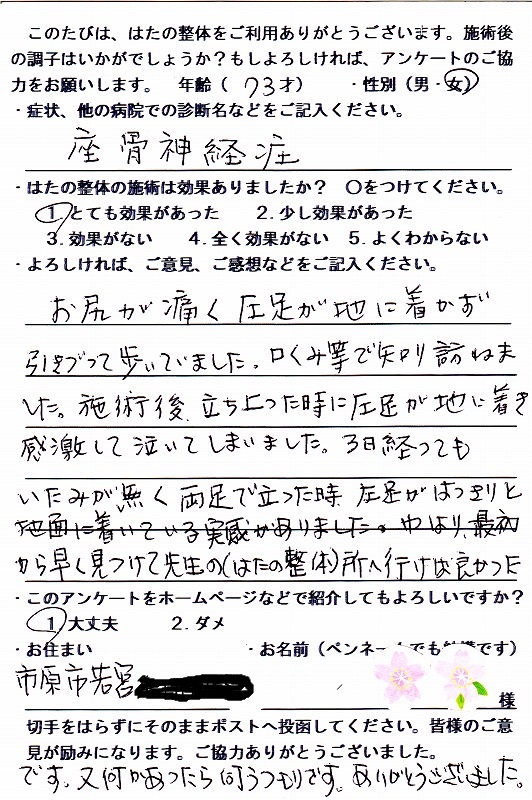 このたびは、はたの整体をご利用ありがとうございます。施術後
の調子はいかがでしょうか？もしよろしければ、アンケートのご協
力をお願いします。　年齢（　73才）　・性別（男・女）
・症状、他の病院での診断名などをご記入ください。
座骨神経症
・はたの整体の施術は効果ありましたか？　〇をつけてください。
1. とても効果があった　2. 少し効果があった
3. 効果がない　4. 全く効果がない　5. よくわからない
・よろしければ、ご意見、ご感想などをご記入ください。
お尻が痛く左足が地に着かず
引きづって歩いていました。口くみ等で知り訪ねま
した。施術後、立ち上った時に左足が地に着き
感激して泣いてしまいました。3日経っても
いたみが無く両足で立った時、左足がはっきりと
地面に着いている実感がありました。やはり、最初
から早く見つけて先生の（はたの整体）所へ行けば良かった
・このアンケートをホームページなどで紹介してもよろしいですか？
1. 大丈夫　2. ダメ
・お住まい　・お名前（ペンネームでも結構です）
市原市若宮
様
切手をはらずにそのままポストへ投函してください。皆様のご意
見が励みになります。ご協力ありがとうございました。
です。又何かあったら伺うつもりです。ありがとうございました。